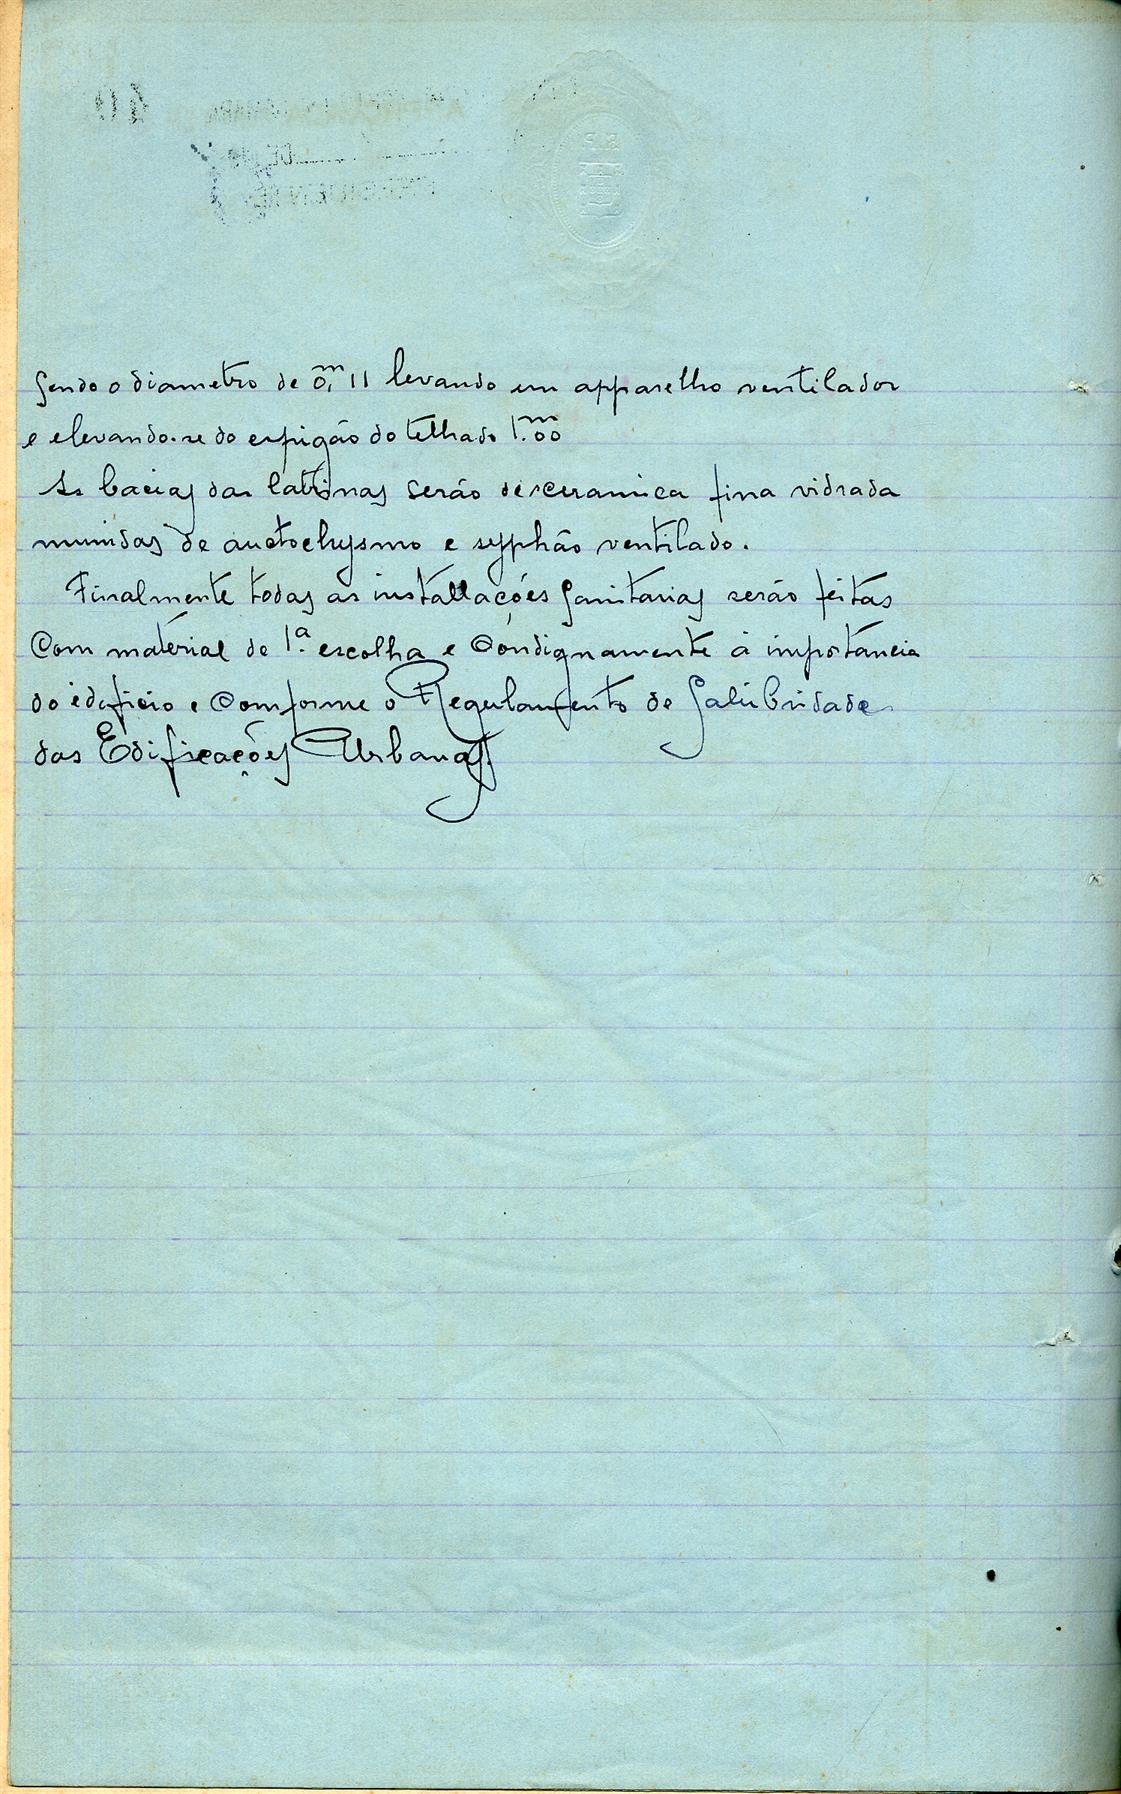 sendo o diametro de 0,ᵐ11 levando um apparelho ventilador
e elevando-se do espigão do telhado 1.ᵐ00
As bacias das latrinas serão de ceramica fina vidrada
munidas de auctoclysmo e syphão ventilado.
Finalmente todas as installações sanitarias serão feitas
com material de 1.ª escolha e condignamente á importancia
do edeficio e comforme o Regulamento de Salubridade
das Edificações Urbanas